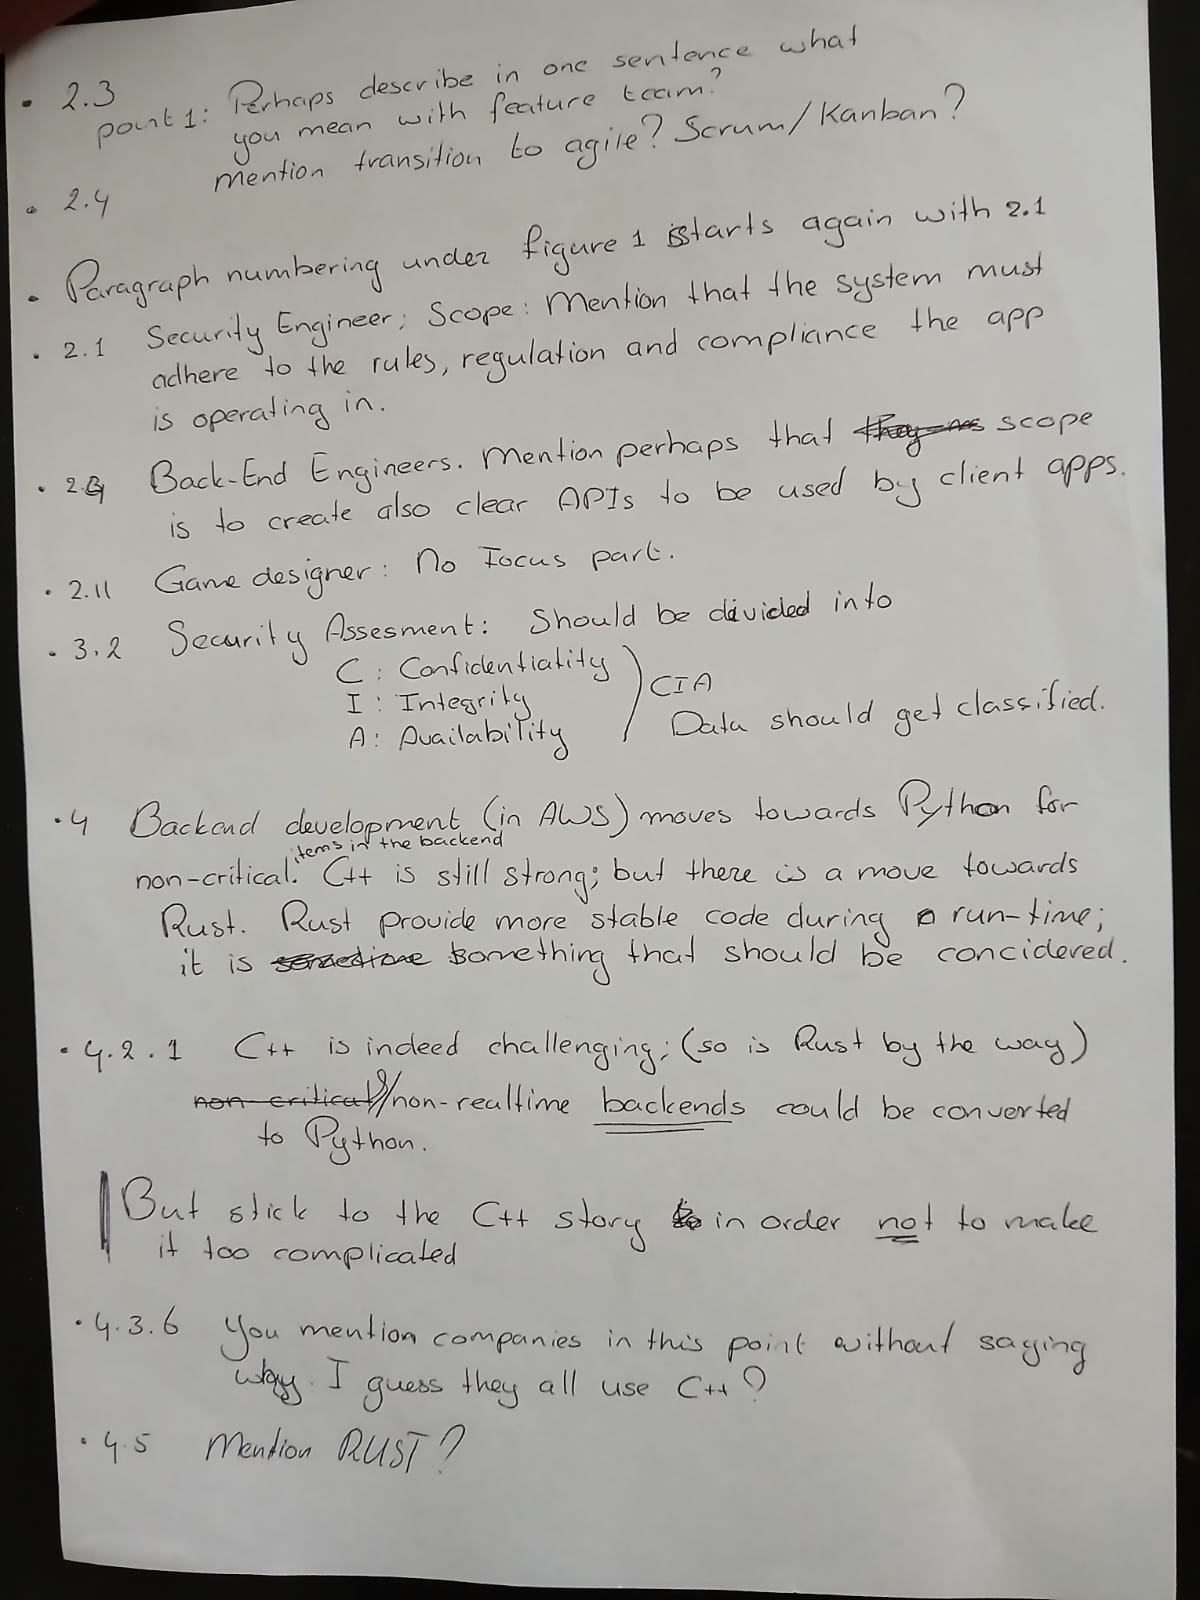 • 2.3
point 1: Perhaps describe in one sentence what
you mean with feature team?
• 2.4 mention transition to agile? Scrum/Kanban?
• Paragraph numbering under figure 1 starts again with 2.1
• 2.1 Security Engineer; Scope: Mention that the system must
adhere to the rules, regulation and compliance the app
is operating in.
• 2.9 Back-End Engineers. Mention perhaps that scope
is to create also clear APIs to be used by client apps.
• 2.11 Game designer: No Focus part.
• 3.2 Security Assesment: Should be divided into
C: Confidentiality
I: Integrity
A: Availability
CIA
Data should get classified.
• 4 Backend development (in AWS) moves towards Python for
non-critical items in the backend. C++ is still strong; but there is a move towards
Rust. Rust provide more stable code during run-time;
it is something that should be concidered.
• 4.2.1 C++ is indeed challenging; (so is Rust by the way)
non-critical/non-realtime backends could be converted
to Python.
But stick to the C++ story in order not to make
it too complicated
• 4.3.6 You mention companies in this point without saying
why. I guess they all use C++?
• 4.5 Mention RUST?